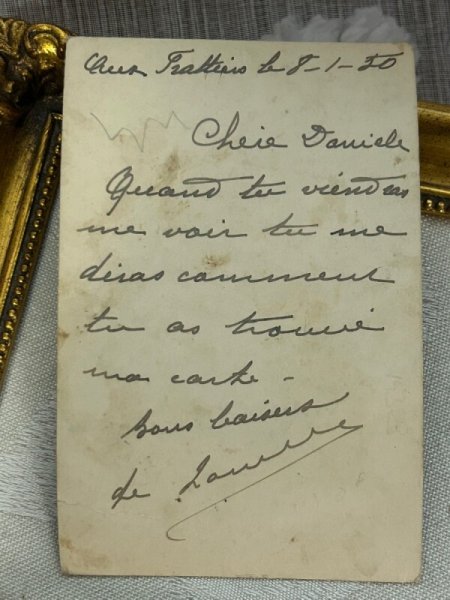 Aux Frattiers le 8-1-50
Chère Danièle
Quand tu viendras
me voir tu me
diras comment
tu as trouvé
ma carte -
bons baisers
de